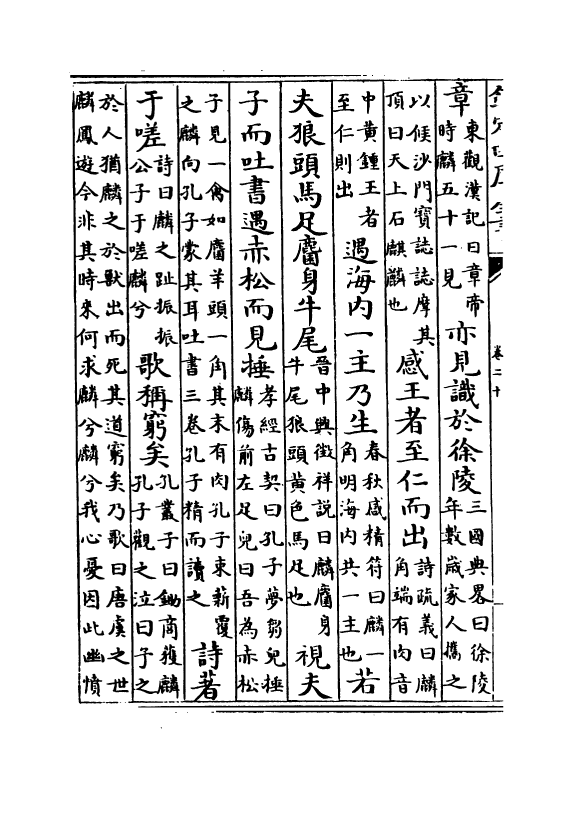 欽定四庫全書
卷二十
章東觀漢記曰章帝時麟五十一見亦見識於徐陵三國典畧曰徐陵年數歲家人攜之
以候沙門寶誌誌摩其頂曰天上石麒麟也感王者至仁而出詩疏義曰麟角端有肉音
中黄鍾王者至仁則出遇海内一主乃生春秋感精符曰麟一角明海内共一主也若
夫狼頭馬足麕身牛尾晉中興徵祥説曰麟麕身牛尾狼頭黄色馬足也視夫
子而吐書遇赤松而見捶孝經古契曰孔子夢芻兒捶麟傷前左足兒曰吾為赤松
子見一禽如麕羊頭一角其末有肉孔子束薪覆之麟向孔子蒙其耳吐書三卷孔子精而讀之詩著
于嗟詩曰麟之趾振振公子于嗟麟兮歌稱窮矣孔叢子曰鋤商獲麟孔子觀之泣曰子之
於人猶麟之於獸出而死其道窮矣乃歌曰唐虞之世麟鳳遊今非其時來何求麟兮麟兮我心憂因此幽憤